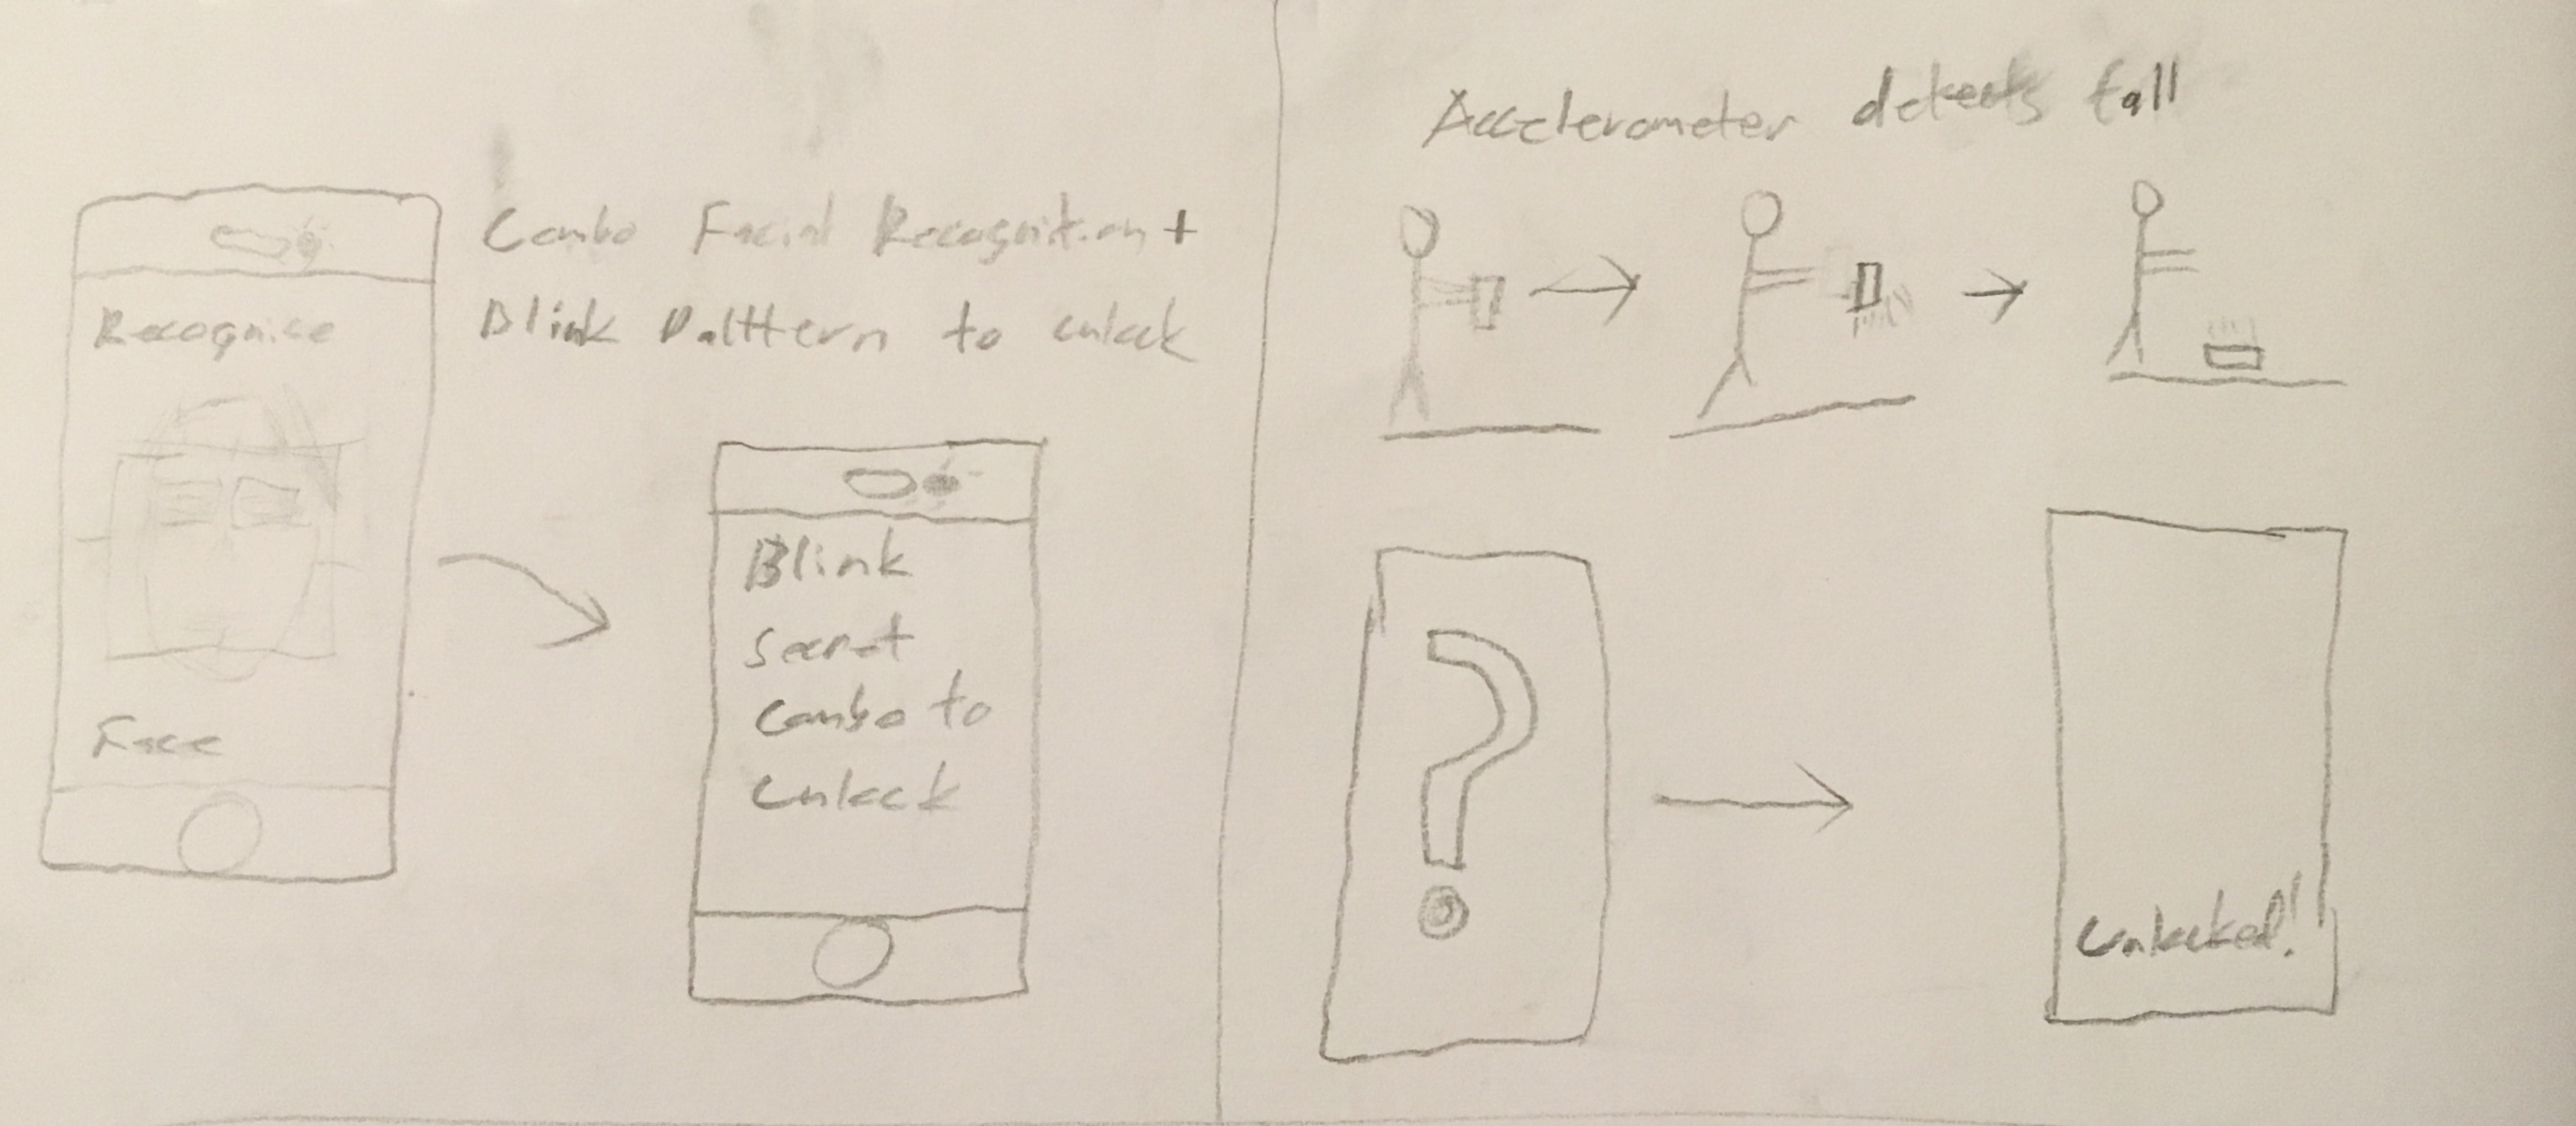 Combo Facial Recognition +
Blink Palttern to unlock
Recognise
Face
Blink
Secret
Combo to
Unlock
Accelerometer detects fall
?
Unlocked!